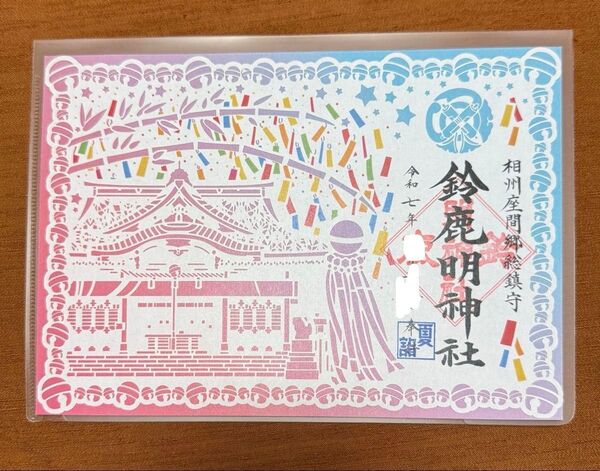 相州座間郷総鎮守
鈴鹿明神社
令和七年
奉
夏詣